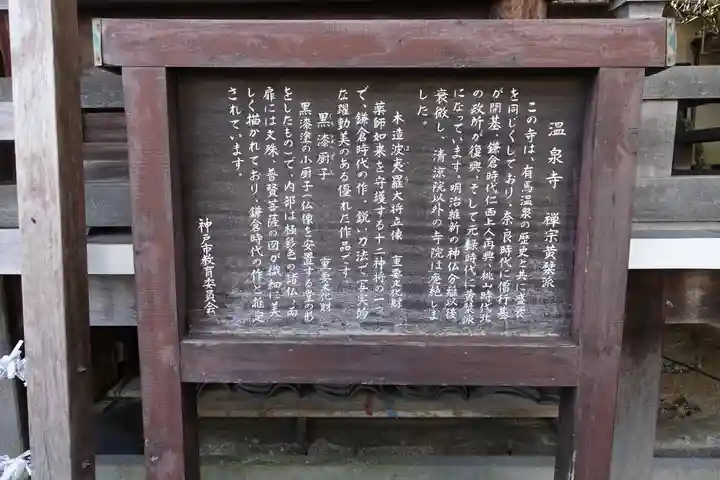 温泉寺　禅宗黄檗派
この寺は、有馬温泉の歴史と共に盛衰
を同じくしており、奈良時代に僧行基
が開基、鎌倉時代仁西上人再興、桃山時代北
の政所が復興、そして元禄時代に黄檗派
になっています。明治維新の神仏分離以後
衰微し、清涼院以外の寺院は廃絶しま
した。
木造波夷羅大将立像　重要文化財
はいら
薬師如来を守護する十二神将の一つ
で、鎌倉時代の作。鋭い刀法で写実的
な躍動美のある優れた作品です。
黒漆厨子　重要文化財
黒漆塗の小厨子（仏像を安置する堂の形
をしたもの）で、内部は極彩色の諸仏、両
扉には文殊、普賢菩薩の図が繊細に美
しく描かれており、鎌倉時代の作と推定
されています。
神戸市教育委員会